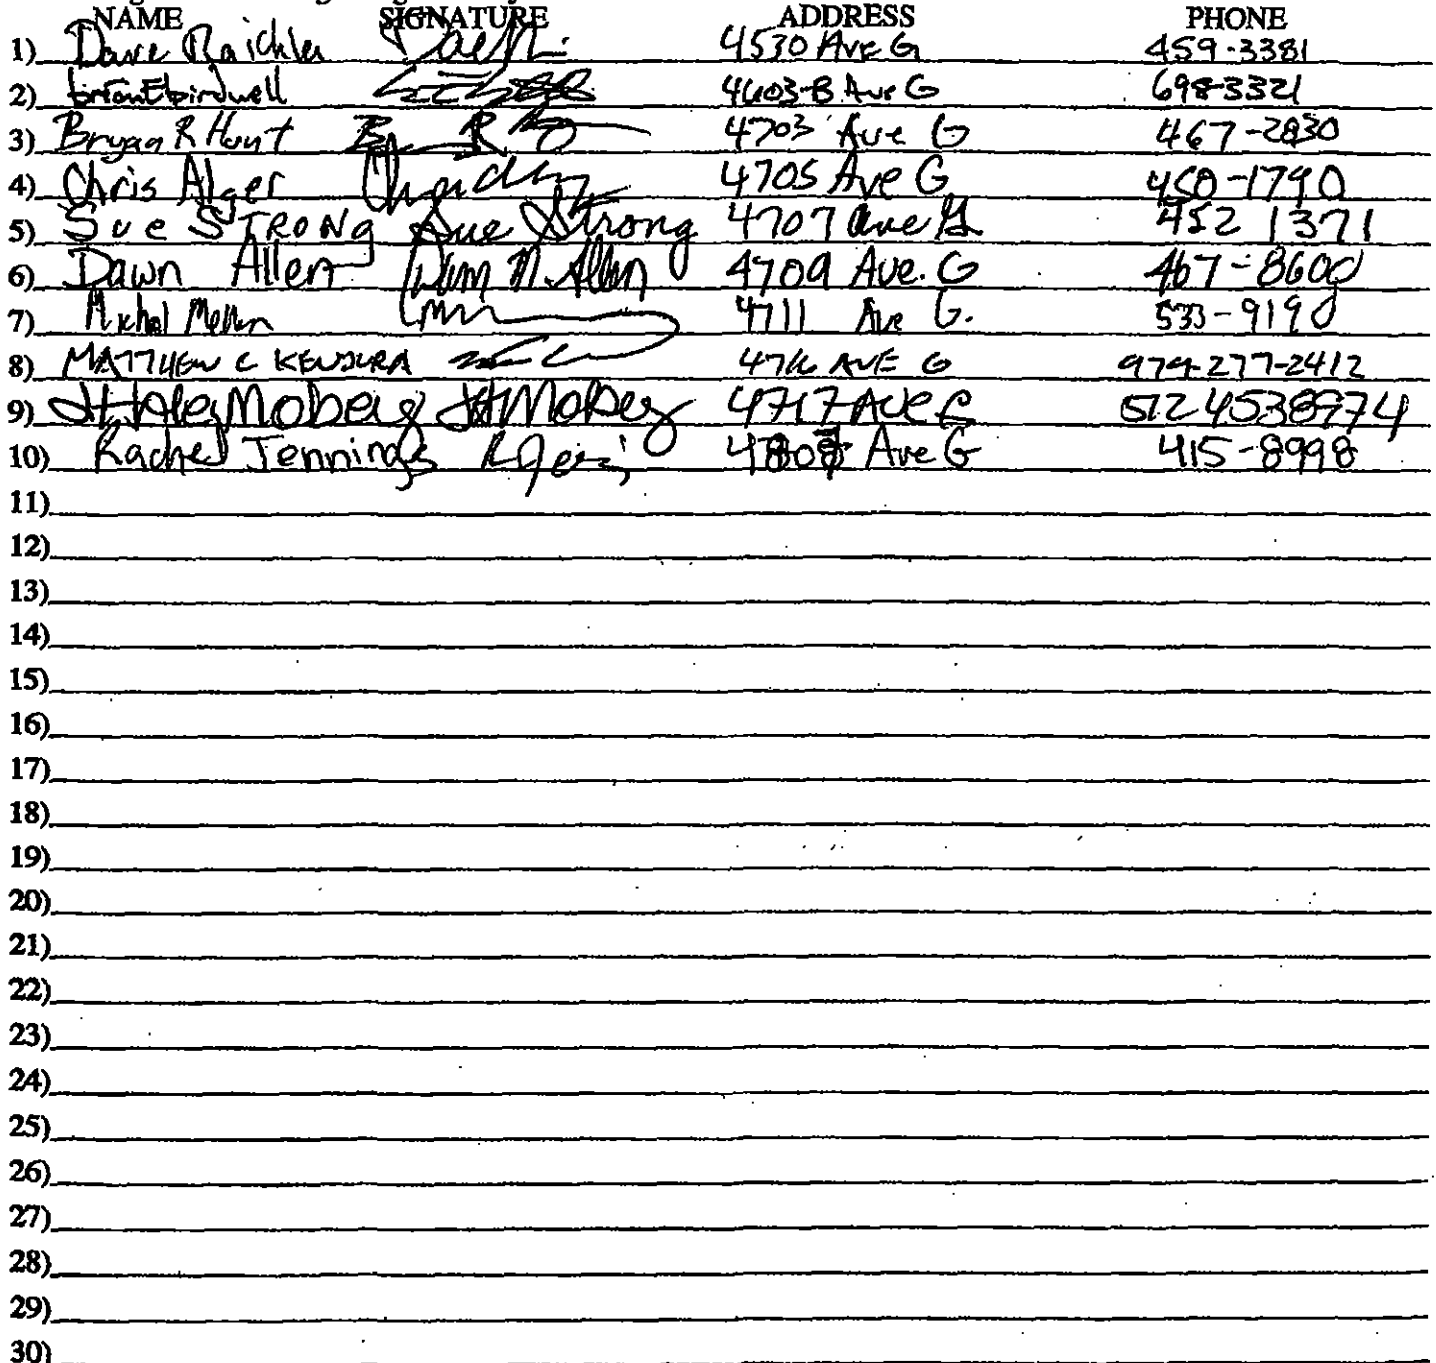 NAME SIGNATURE ADDRESS PHONE
1) Dave Raichle 4530 Ave G 459-3381
2) 4603-B Ave G 698-3321
3) Bryan R Hunt 4703 Ave G 467-2830
4) Chris Alger 4705 Ave G 450-1790
5) Sue STRONG Sue Strong 4707 Ave G 452 1371
6) Dawn Allen Dawn M. Allen 4709 Ave. G 467-8600
7) 4711 Ave G. 533-9190
8) MATTHEW C KENJURA AVE G 979-277-2412
9) Moberg 4717 Ave 512 4538974
10) Rachel Jennings Ave G 415-8998
11)
12)
13)
14)
15)
16)
17)
18)
19)
20)
21)
22)
23)
24)
25)
26)
27)
28)
29)
30)